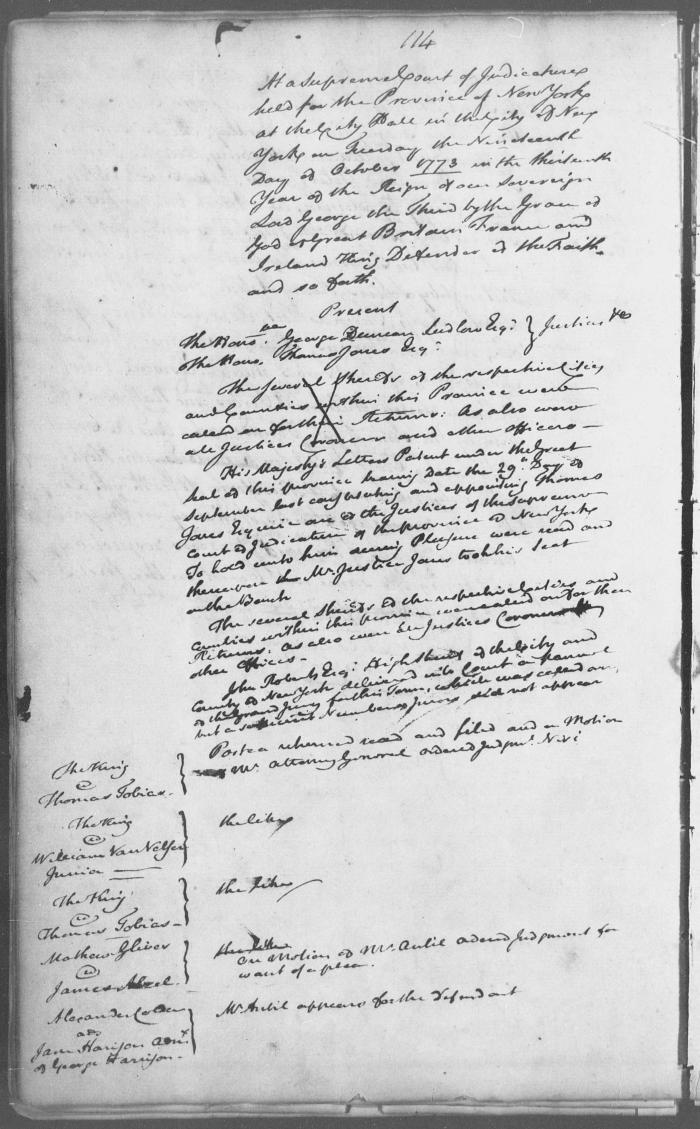 114
At a Supreme Court of Judicature
held for the Province of New York
at the City Hall in the City of New
York on Tuesday the Nineteenth
Day of October 1773 in the thirteenth
Year of the Reign of our Sovereign
Lord George the Third by the Grace of
God of Great Britain France and
Ireland King Defender of the Faith
and so forth.
Present
The Honble. George Duncan Ludlow Esqr. } Justices &c
The Hono. Thomas Jones Esqr.
The several Sheriffs of the respective Cities
and Counties within this Province were
called on for their Returns: As also were
all Justices Coroners and other officers —
His Majesty's Letters Patent under the Great
Seal of this province bearing date the 29th. Day of
September last constituting and appointing Thomas
Jones Esquire one of the Justices of the Supreme
Court of Judicature of the province of New York
To hold unto him during Pleasure were read and
thereupon the Mr. Justice Jones took his Seat
on the Bench
The several Sheriffs of the respective Cities and
Counties within this province were called on for their
Returns: As also were all Justices Coroners
other officers —
John Roberts Esqr. High Sheriff of the City and
County of New York delivered into Court a pannel
of the Grand Jury for this Term, which was called over
but a sufficient Number of Jurors did not appear
The King
@
Thomas Tobias. } Postea returned read and filed and on Motion
Mr. Attorney General ordered Judgmt. Nisi
The King
@
William Van Velsen
Junior } the like
The King
@
Thomas Tobias } the like
Mathew Gliver
@
James Abeel. } the like
On Motion of Mr. Antil ordered Judgment for
want of a plea.
Alexander Colden
ads
Jane Harison Admx.
of George Harrison } Mr. Antil appears for the defendant